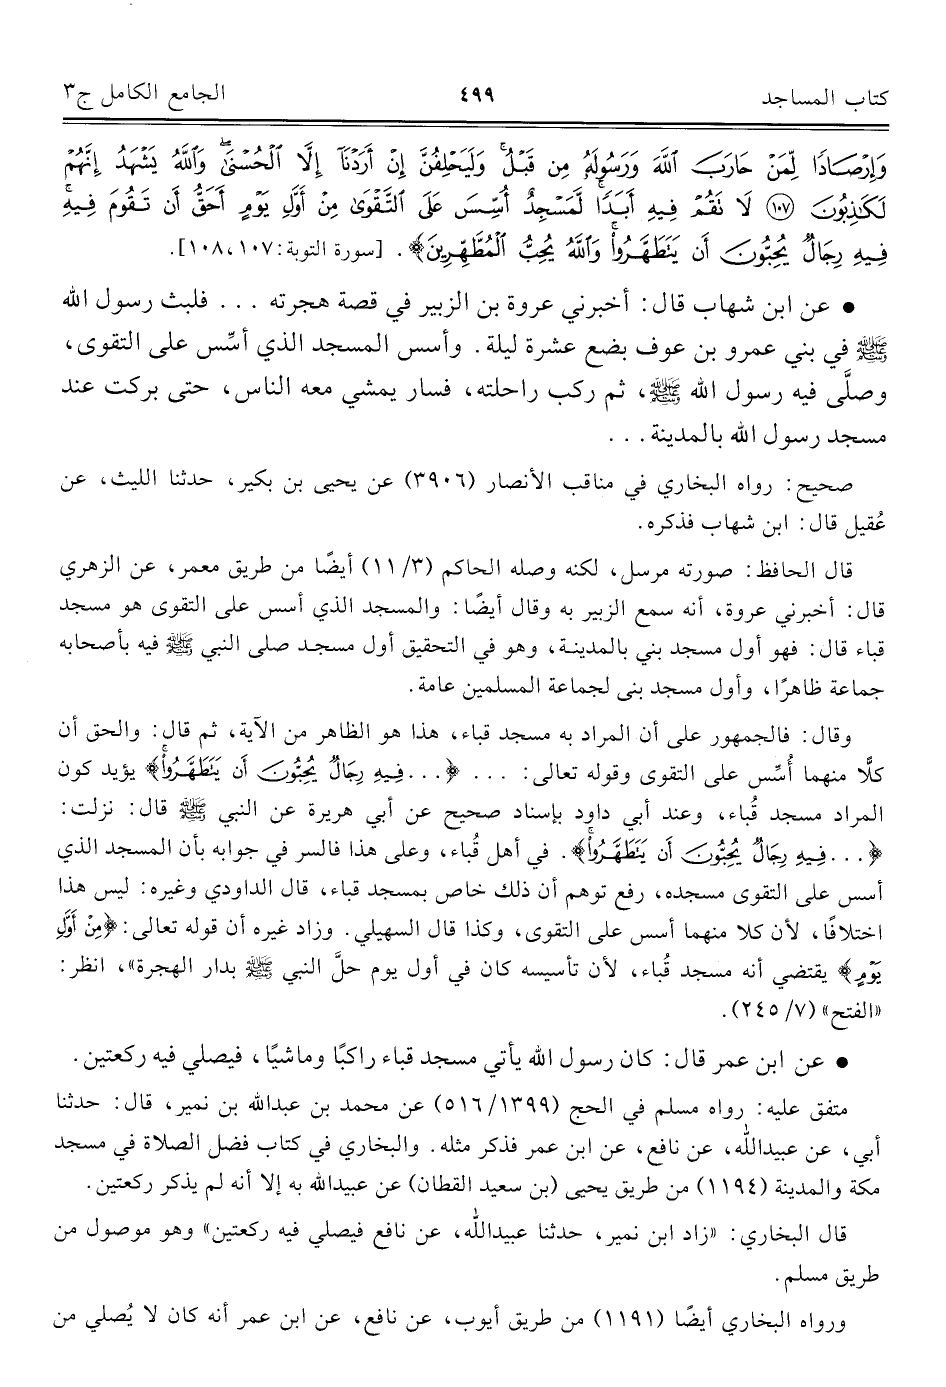 كتاب المساجد ٤٩٩ الجامع الكامل ج٣
وَإِرْصَادًا لِّمَنْ حَارَبَ ٱللَّهَ وَرَسُولَهُۥ مِن قَبْلُ ۚ وَلَيَحْلِفُنَّ إِنْ أَرَدْنَآ إِلَّا ٱلْحُسْنَىٰ ۖ وَٱللَّهُ يَشْهَدُ إِنَّهُمْ
لَكَـٰذِبُونَ ﴿١٠٧﴾ لَا تَقُمْ فِيهِ أَبَدًا ۚ لَّمَسْجِدٌ أُسِّسَ عَلَى ٱلتَّقْوَىٰ مِنْ أَوَّلِ يَوْمٍ أَحَقُّ أَن تَقُومَ فِيهِ ۚ
فِيهِ رِجَالٌ يُحِبُّونَ أَن يَتَطَهَّرُوا۟ ۚ وَٱللَّهُ يُحِبُّ ٱلْمُطَّهِّرِينَ﴾. [سورة التوبة: ١٠٧، ١٠٨].
• عن ابن شهاب قال: أخبرني عروة بن الزبير في قصة هجرته . . . فلبث رسول الله
ﷺ في بني عمرو بن عوف بضع عشرة ليلة. وأسس المسجد الذي أسِّس على التقوى،
وصلَّى فيه رسول الله ﷺ، ثم ركب راحلته، فسار يمشي معه الناس، حتى بركت عند
مسجد رسول الله بالمدينة . . .
صحيح: رواه البخاري في مناقب الأنصار (٣٩٠٦) عن يحيى بن بكير، حدثنا الليث، عن
عُقيل قال: ابن شهاب فذكره.
قال الحافظ: صورته مرسل، لكنه وصله الحاكم (٣/ ١١) أيضًا من طريق معمر، عن الزهري
قال: أخبرني عروة، أنه سمع الزبير به وقال أيضًا: والمسجد الذي أسس على التقوى هو مسجد
قباء قال: فهو أول مسجد بني بالمدينة، وهو في التحقيق أول مسجد صلى النبي ﷺ فيه بأصحابه
جماعة ظاهرًا، وأول مسجد بنى لجماعة المسلمين عامة.
وقال: فالجمهور على أن المراد به مسجد قباء، هذا هو الظاهر من الآية، ثم قال: والحق أن
كلًّا منهما أُسِّس على التقوى وقوله تعالى: . . . ﴿. . .فِيهِ رِجَالٌ يُحِبُّونَ أَن يَتَطَهَّرُوا۟ ۚ﴾ يؤيد كون
المراد مسجد قُباء، وعند أبي داود بإسناد صحيح عن أبي هريرة عن النبي ﷺ قال: نزلت:
﴿. . .فِيهِ رِجَالٌ يُحِبُّونَ أَن يَتَطَهَّرُوا۟ ۚ﴾. في أهل قُباء، وعلى هذا فالسر في جوابه بأن المسجد الذي
أسس على التقوى مسجده، رفع توهم أن ذلك خاص بمسجد قباء، قال الداودي وغيره: ليس هذا
اختلافًا، لأن كلا منهما أسس على التقوى، وكذا قال السهيلي. وزاد غيره أن قوله تعالى: ﴿مِنْ أَوَّلِ
يَوْمٍ﴾ يقتضي أنه مسجد قُباء، لأن تأسيسه كان في أول يوم حلَّ النبي ﷺ بدار الهجرة»، انظر:
«الفتح» (٧/ ٢٤٥).
• عن ابن عمر قال: كان رسول الله يأتي مسجد قباء راكبًا وماشيًا، فيصلي فيه ركعتين.
متفق عليه: رواه مسلم في الحج (١٣٩٩/ ٥١٦) عن محمد بن عبدالله بن نمير، قال: حدثنا
أبي، عن عبيدالله، عن نافع، عن ابن عمر فذكر مثله. والبخاري في كتاب فضل الصلاة في مسجد
مكة والمدينة (١١٩٤) من طريق يحيى (بن سعيد القطان) عن عبيدالله به إلا أنه لم يذكر ركعتين.
قال البخاري: «زاد ابن نمير، حدثنا عبيدالله، عن نافع فيصلي فيه ركعتين» وهو موصول من
طريق مسلم.
ورواه البخاري أيضًا (١١٩١) من طريق أيوب، عن نافع، عن ابن عمر أنه كان لا يُصلي من